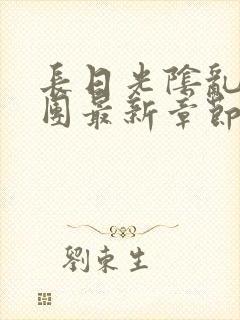 長日光陰亂
團最新章節
劉東生